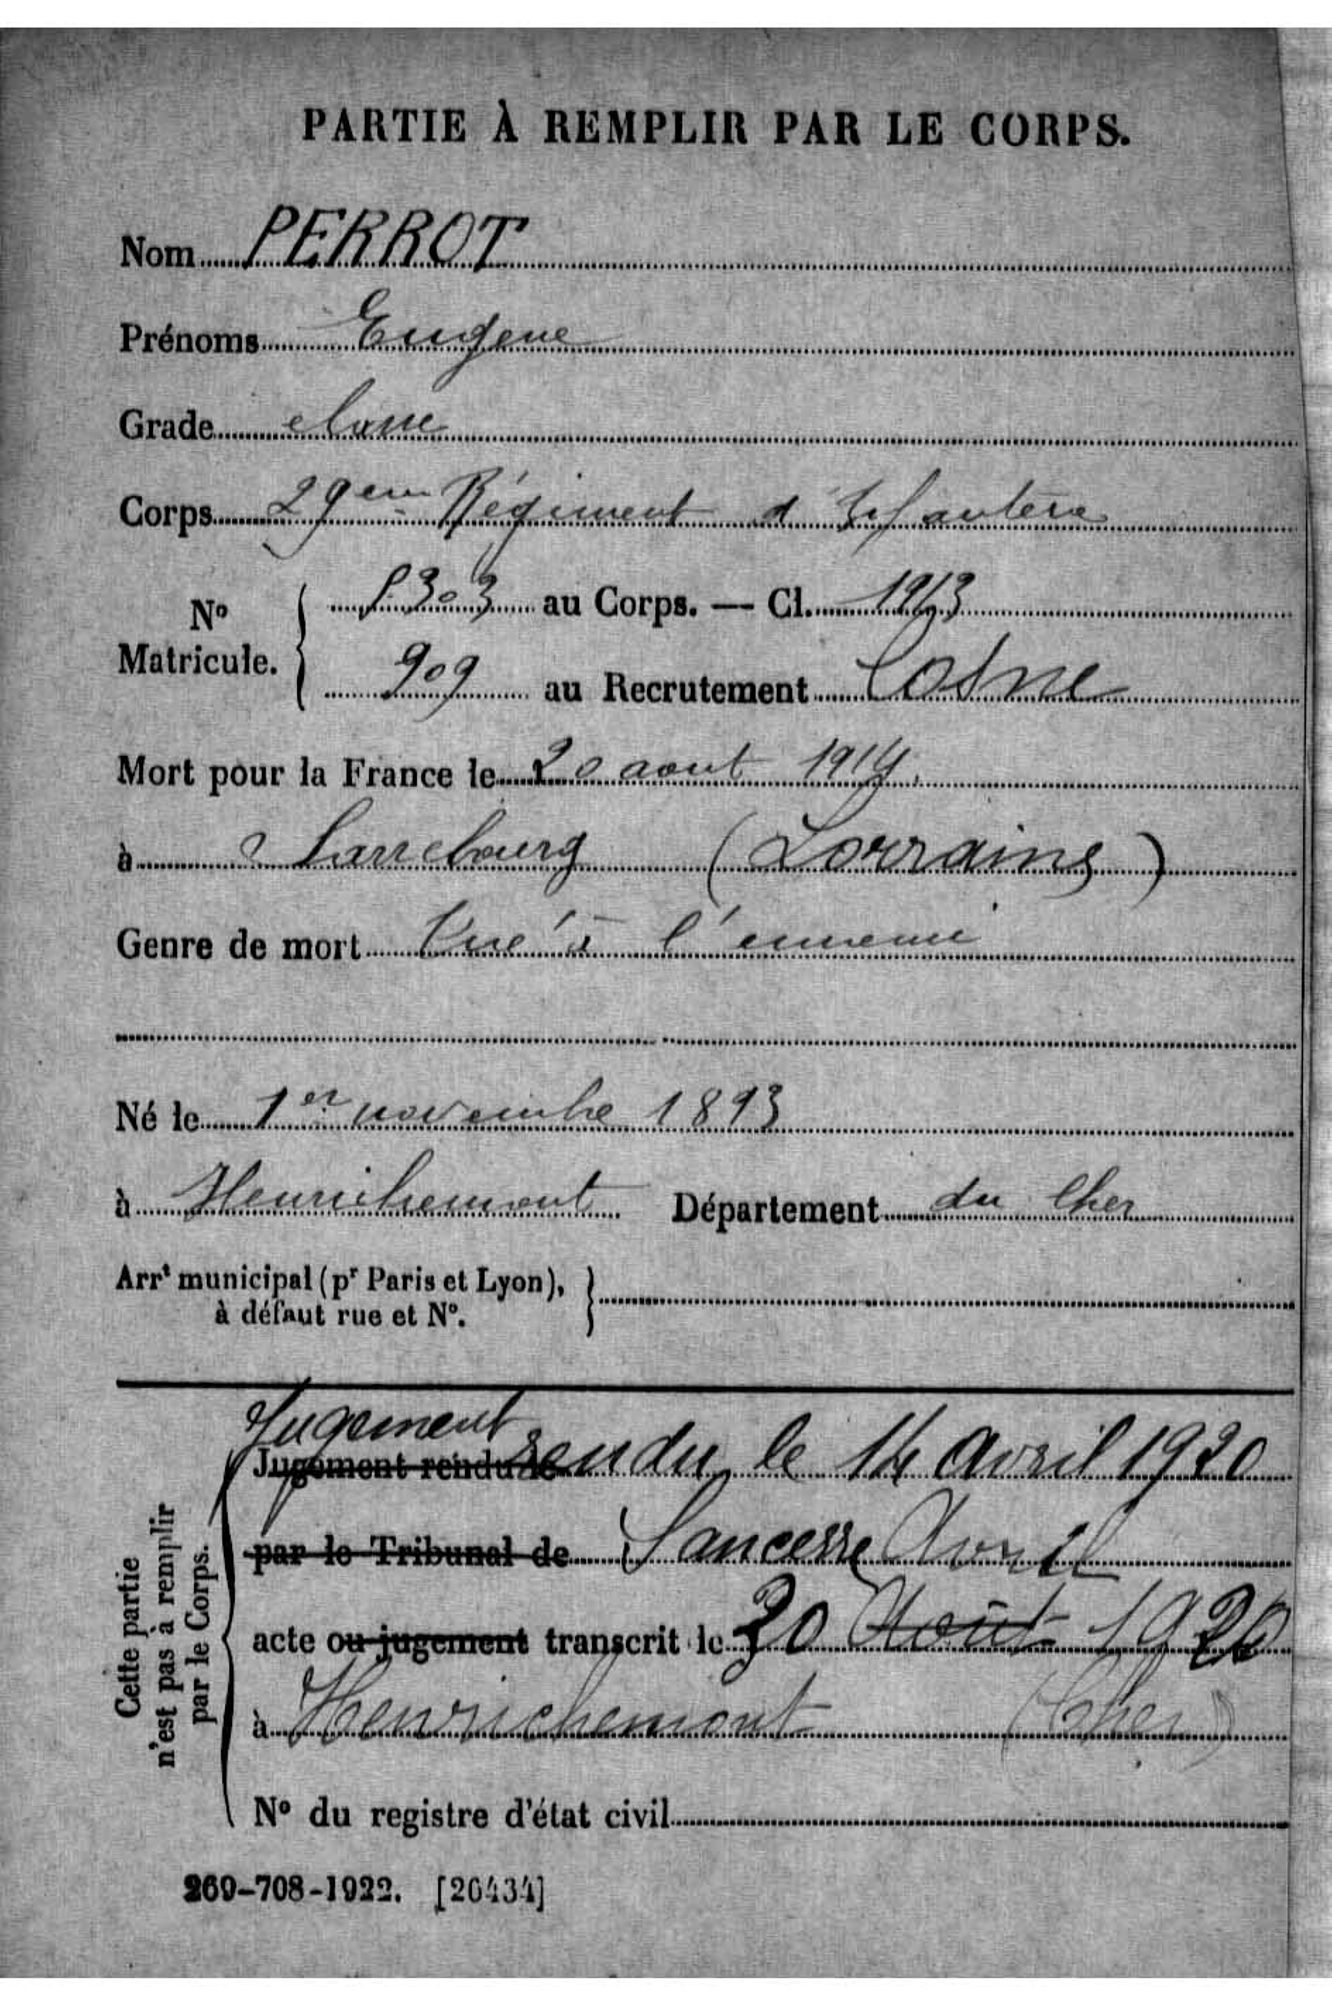 PARTIE À REMPLIR PAR LE CORPS.
Nom PERROT
Prénoms Eugene
Grade classe
Corps 29eme Régiment d'Infanterie
No Matricule. 303 au Corps. — Cl. 1913
909 au Recrutement Cosne
Mort pour la France le 20 aout 1914.
à Sarrebourg (Lorraine)
Genre de mort Tué à l'ennemi
Né le 1er novembre 1893
à Henrichemont Département du Cher
Arrt municipal (pr Paris et Lyon),
à défaut rue et No.
Cette partie
n'est pas à remplir
par le Corps.
Jugement
Jugement rendu le rendu le 14 avril 1920
par le Tribunal de Sancerre Avril
acte ou jugement transcrit le 30 Août 1920
à Henrichemont (Cher)
No du registre d'état civil
269-708-1922. [26434]